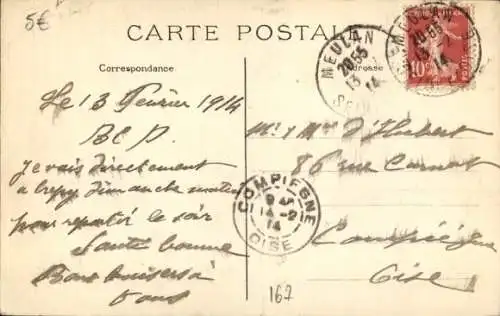 5€
CARTE POSTALE
Correspondance
Adresse
MEULAN
20 55
13
14
MEULAN
14
10
POSTES
Le 13 Février 1914
B C P.
Je vais directement
a crepy dimanche matin
pour repartir le soir
Santé bonne
Bons baisers a
tous
Mr & Mme d'Hubert
86 rue Carnot
Compiègne
Oise
COMPIEGNE
14 -2
14
OISE
167